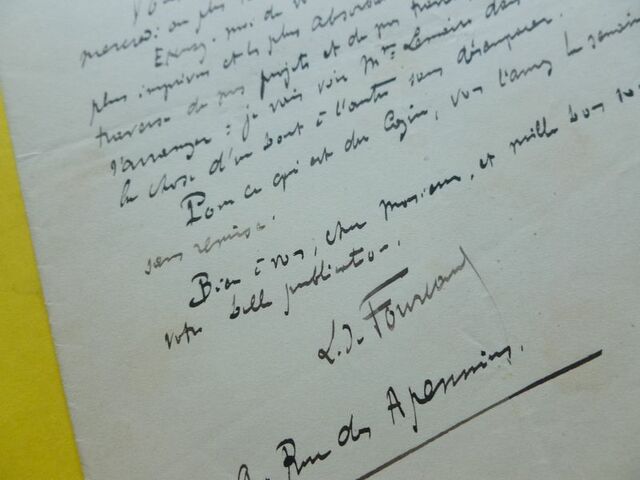 Vous
mercredi au plus
Excusez-moi de
plus imprévues et les plus absorbantes
travers de mes projets et de mes travaux
s'arranger : je vais voir Mme Lemaire dans
la chose d'un bout à l'autre sans désemparer.
Pour ce qui est du Cazin, vous l'aurez la semaine
sans remise.
Bien à vous, cher Monsieur, et mille bons
votre belle publication.
L. de Fourcaud
Rue des Apennins.